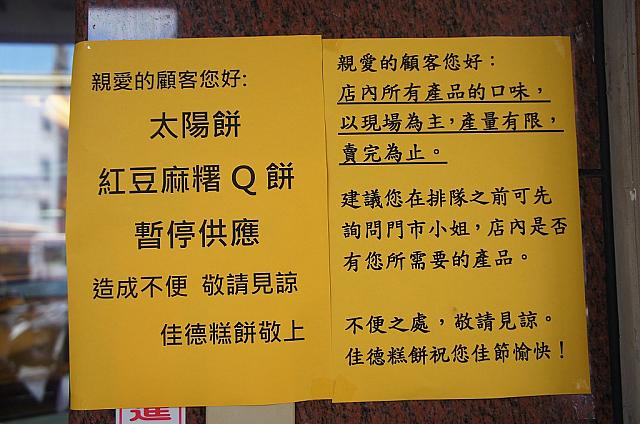 親愛的顧客您好:
太陽餅
紅豆麻糬 Q 餅
暫停供應
造成不便 敬請見諒
佳德糕餅敬上
親愛的顧客您好：
店內所有產品的口味，
以現場為主，產量有限，
賣完為止。
建議您在排隊之前可先
詢問門市小姐，店內是否
有您所需要的產品。
不便之處，敬請見諒。
佳德糕餅祝您佳節愉快！